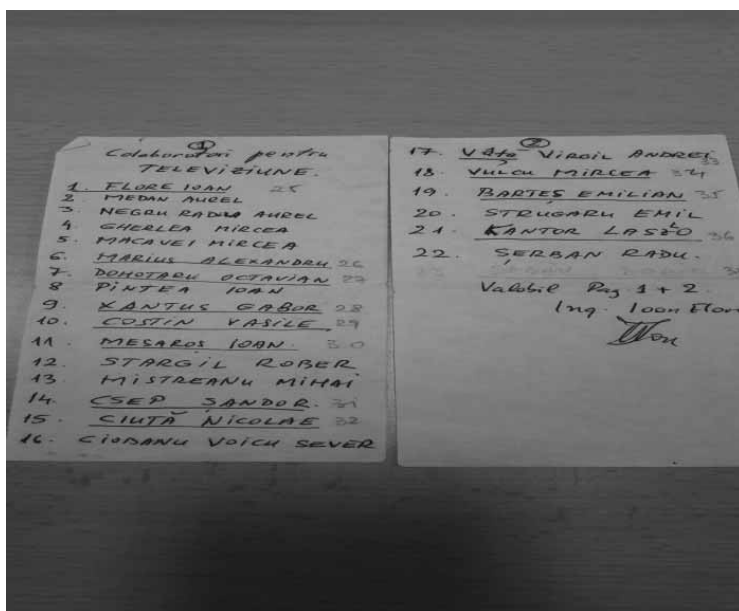 1
Colaboratori pentru
TELEVIZIUNE.
1. FLORE IOAN 25
2 MEDAN AUREL
3 NEGRU RADU AUREL
4 GHERLEA MIRCEA
5. MACAVEI MIRCEA
6. MARIUS ALEXANDRU 26
7. DOMOTARU OCTAVIAN 27
8 PINTEA IOAN
9. XANTUS GABOR 28
10. COSTIN VASILE 29
11. MESAROS IOAN. 30
12. STARGIL ROBER
13. MISTREANU MIHAI
14. CSEP SANDOR. 31
15. CIUTĂ NICOLAE 32
16. CIOBANU VOICU SEVER
2
17. VIRGIL ANDREI 33
18. VULCU MIRCEA 34
19. BARTEȘ EMILIAN 35
20. STRUGARU EMIL
21. KANTOR LASZLO 36
22. SERBAN RADU.
23
Valabil Pag 1 + 2.
Ing. Ioan Flore